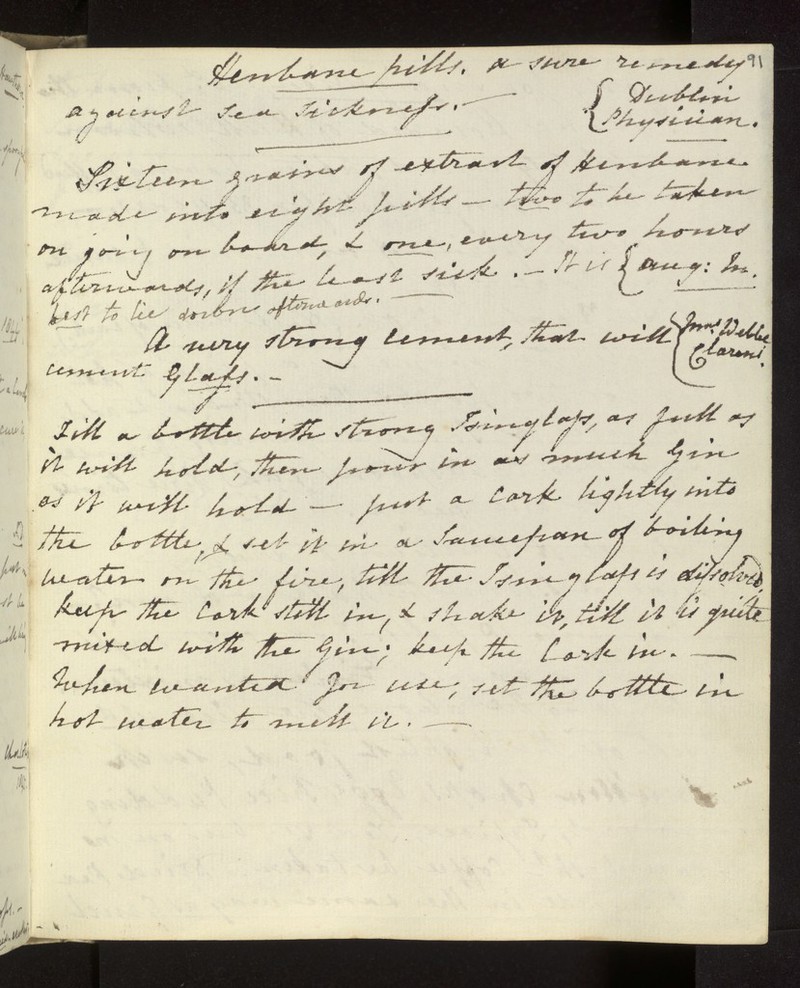 91
Henbane pills. a sure remedy
against Sea Sickness. —
{Dublin
Physician.
Sixteen grains of extract of Henbane
made into eight pills — two to be taken
on going on board, & one, every two hours
afterwards, if the least sick. — It is
best to lie down afterwards. —
{Aug: In.
A very strong cement, that will
cement Glass. —
Fill a bottle with strong Isinglass, as full as
it will hold, then pour in as much Gin
as it will hold — put a Cork lightly into
the bottle, & set it in a Saucepan of boiling
water on the fire, till the Isinglass is dissolved,
keep the Cork still in, & shake it, till it is quite
mixed with the Gin; keep the Cork in. —
When wanted for use, set the bottle in
hot water to melt it. —